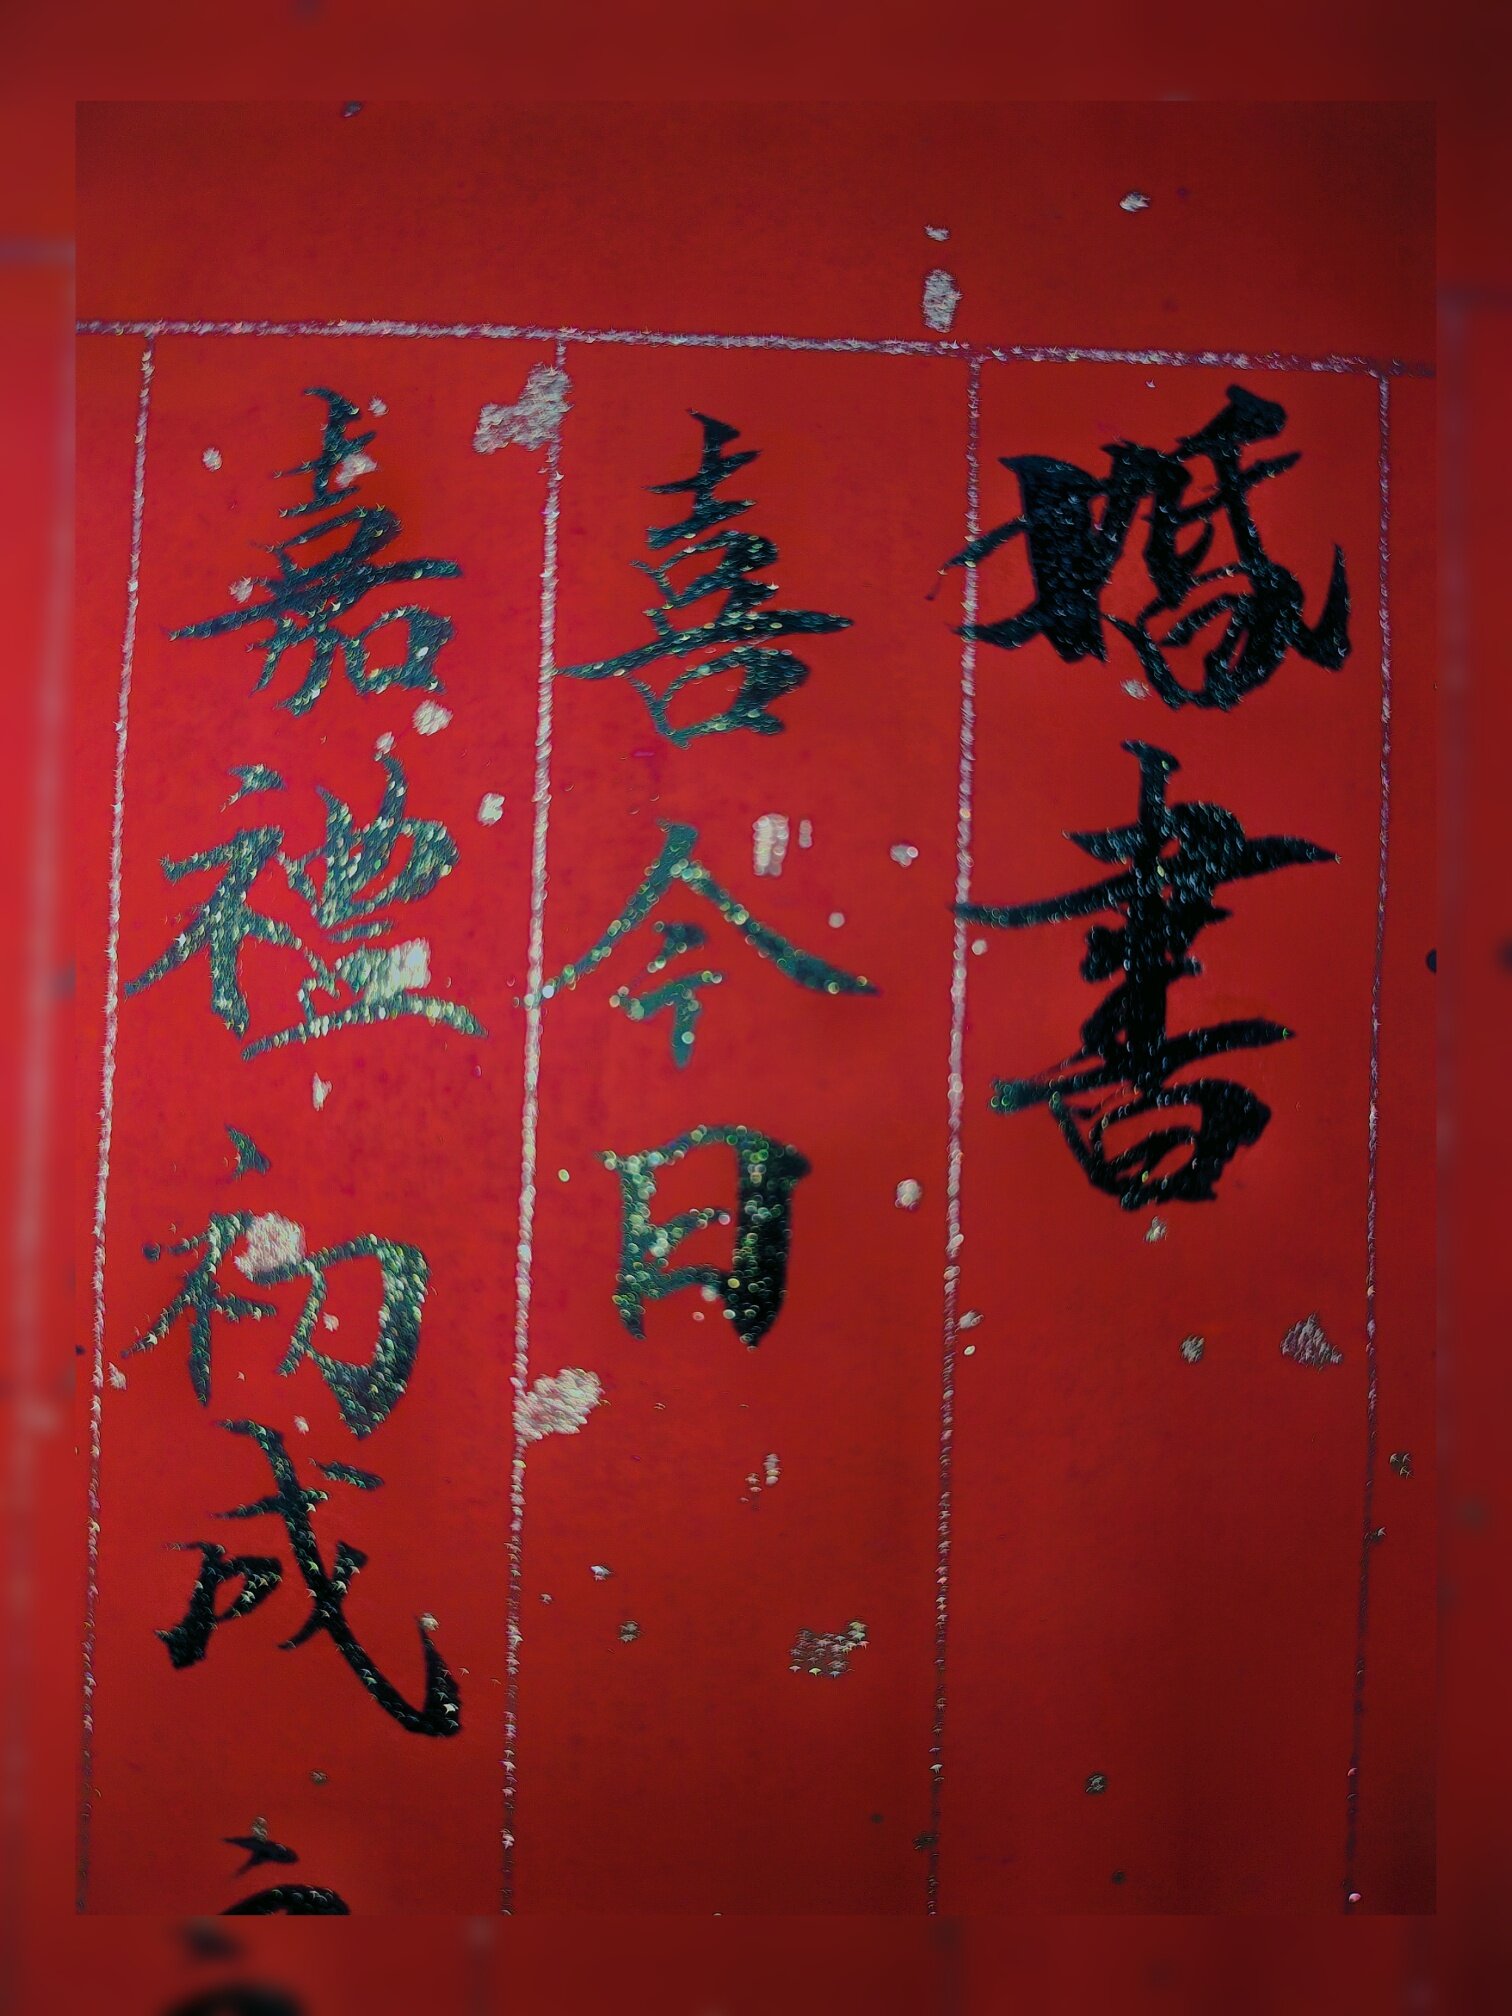 婚書
喜今日
嘉禮初成